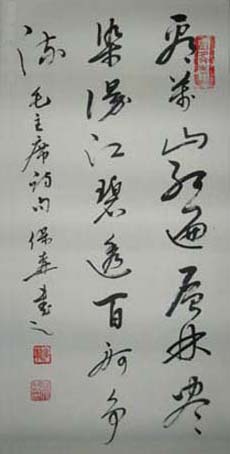 看萬山红遍层林尽
染漫江碧透百舸争
流
毛主席诗句 保書之